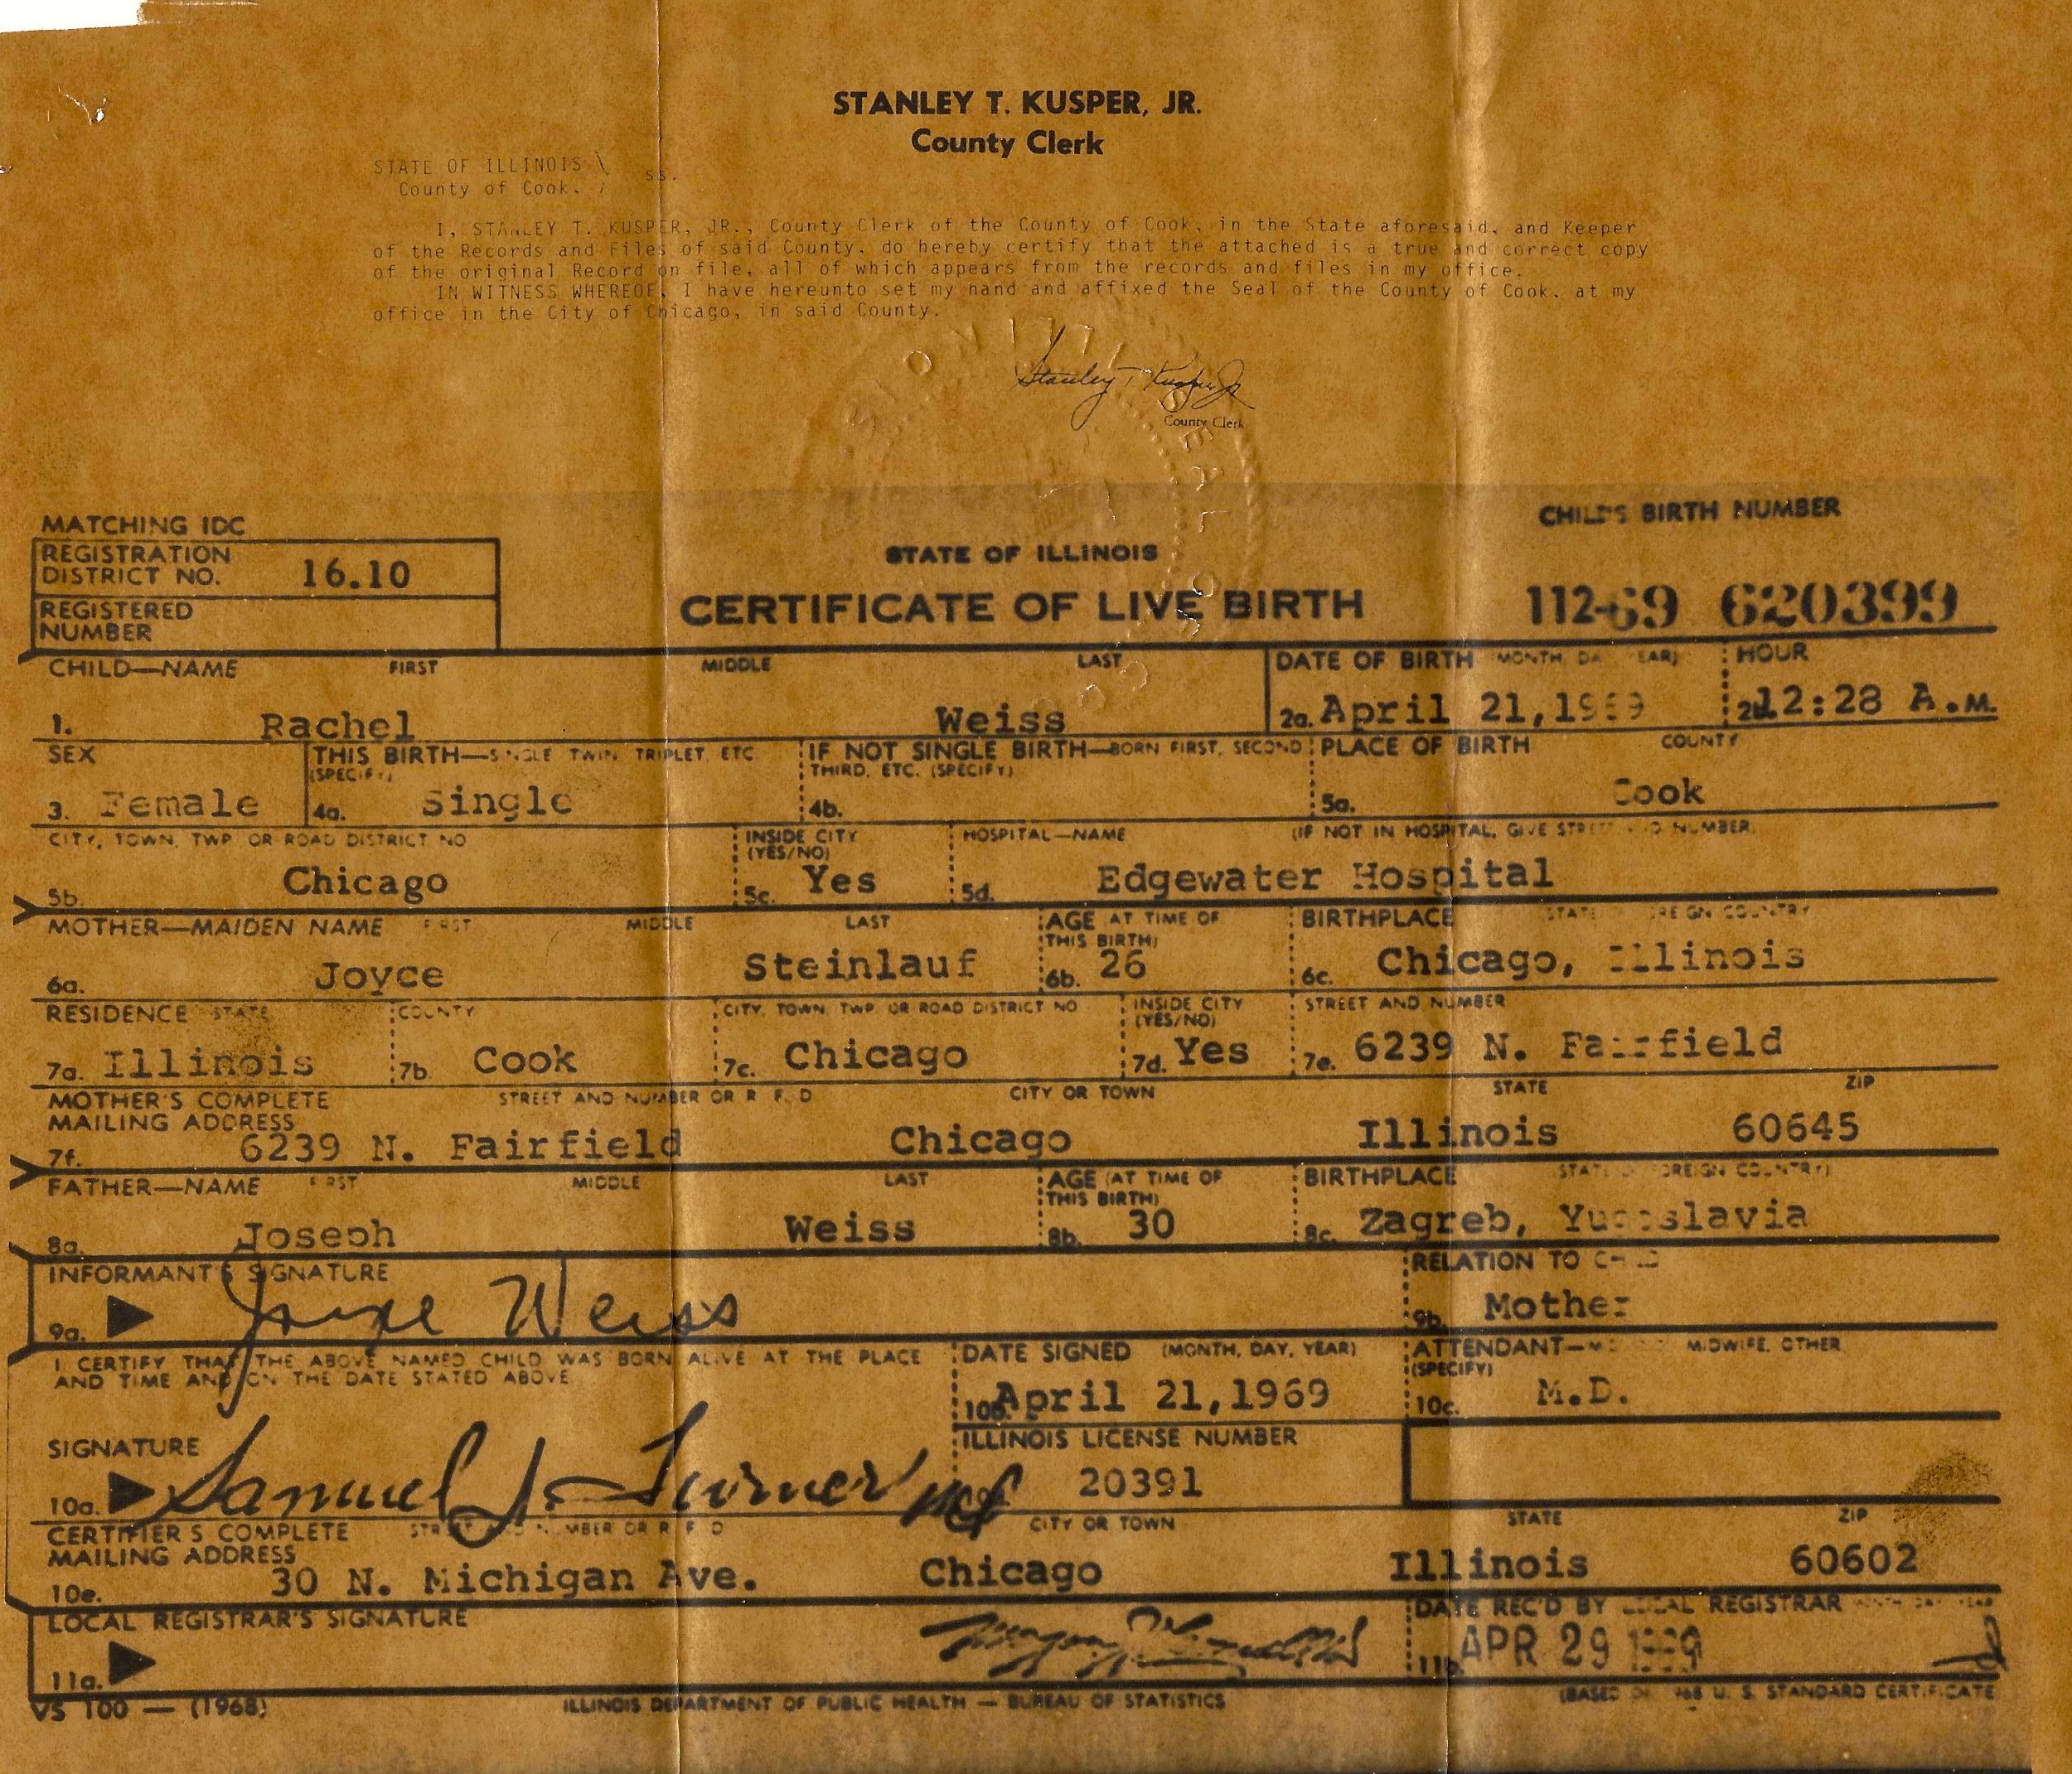 STANLEY T. KUSPER, JR.
County Clerk
STATE OF ILLINOIS
County of Cook. ss.
I, STANLEY T. KUSPER, JR., County Clerk of the County of Cook, in the State aforesaid, and Keeper
of the Records and Files of said County, do hereby certify that the attached is a true and correct copy
of the original Record on file, all of which appears from the records and files in my office.
IN WITNESS WHEREOF, I have hereunto set my hand and affixed the Seal of the County of Cook, at my
office in the City of Chicago, in said County.
Stanley T. Kusper Jr
County Clerk
MATCHING IDC
CHILD'S BIRTH NUMBER
REGISTRATION DISTRICT NO. 16.10
STATE OF ILLINOIS
REGISTERED NUMBER
CERTIFICATE OF LIVE BIRTH
112-69 620399
CHILD—NAME FIRST MIDDLE LAST DATE OF BIRTH (MONTH, DAY, YEAR) HOUR
1. Rachel Weiss 2a. April 21,1969 2b. 12:28 A.M.
SEX THIS BIRTH—SINGLE TWIN, TRIPLET, ETC. (SPECIFY) IF NOT SINGLE BIRTH—BORN FIRST, SECOND THIRD, ETC. (SPECIFY) PLACE OF BIRTH COUNTY
3. Female 4a. Single 4b. 5a. Cook
CITY, TOWN, TWP. OR ROAD DISTRICT NO. INSIDE CITY (YES/NO) HOSPITAL—NAME (IF NOT IN HOSPITAL, GIVE STREET AND NUMBER)
5b. Chicago 5c. Yes 5d. Edgewater Hospital
MOTHER—MAIDEN NAME FIRST MIDDLE LAST AGE AT TIME OF THIS BIRTH) BIRTHPLACE STATE FOREIGN COUNTRY
6a. Joyce Steinlauf 6b. 26 6c. Chicago, Illinois
RESIDENCE STATE COUNTY CITY, TOWN, TWP. OR ROAD DISTRICT NO. INSIDE CITY (YES/NO) STREET AND NUMBER
7a. Illinois 7b. Cook 7c. Chicago 7d. Yes 7e. 6239 N. Fairfield
MOTHER'S COMPLETE MAILING ADDRESS STREET AND NUMBER OR R. F. D. CITY OR TOWN STATE ZIP
7f. 6239 N. Fairfield Chicago Illinois 60645
FATHER—NAME FIRST MIDDLE LAST AGE (AT TIME OF THIS BIRTH) BIRTHPLACE STATE FOREIGN COUNTRY)
8a. Joseph Weiss 8b. 30 8c. Zagreb, Yugoslavia
INFORMANT'S SIGNATURE RELATION TO CHILD
9a. Joyce Weiss 9b. Mother
I CERTIFY THAT THE ABOVE NAMED CHILD WAS BORN ALIVE AT THE PLACE
AND TIME AND ON THE DATE STATED ABOVE
DATE SIGNED (MONTH, DAY, YEAR) ATTENDANT— MIDWIFE, OTHER (SPECIFY)
10b. April 21,1969 10c. M.D.
SIGNATURE ILLINOIS LICENSE NUMBER
10a. Samuel J. Turner MD 20391
CERTIFIER'S COMPLETE MAILING ADDRESS STREET AND NUMBER OR R F D CITY OR TOWN STATE ZIP
10e. 30 N. Michigan Ave. Chicago Illinois 60602
LOCAL REGISTRAR'S SIGNATURE DATE REC'D BY LOCAL REGISTRAR
11a. 11b. APR 29 1969
VS 100 — (1968) ILLINOIS DEPARTMENT OF PUBLIC HEALTH — BUREAU OF STATISTICS (BASED ON 1968 U. S. STANDARD CERTIFICATE